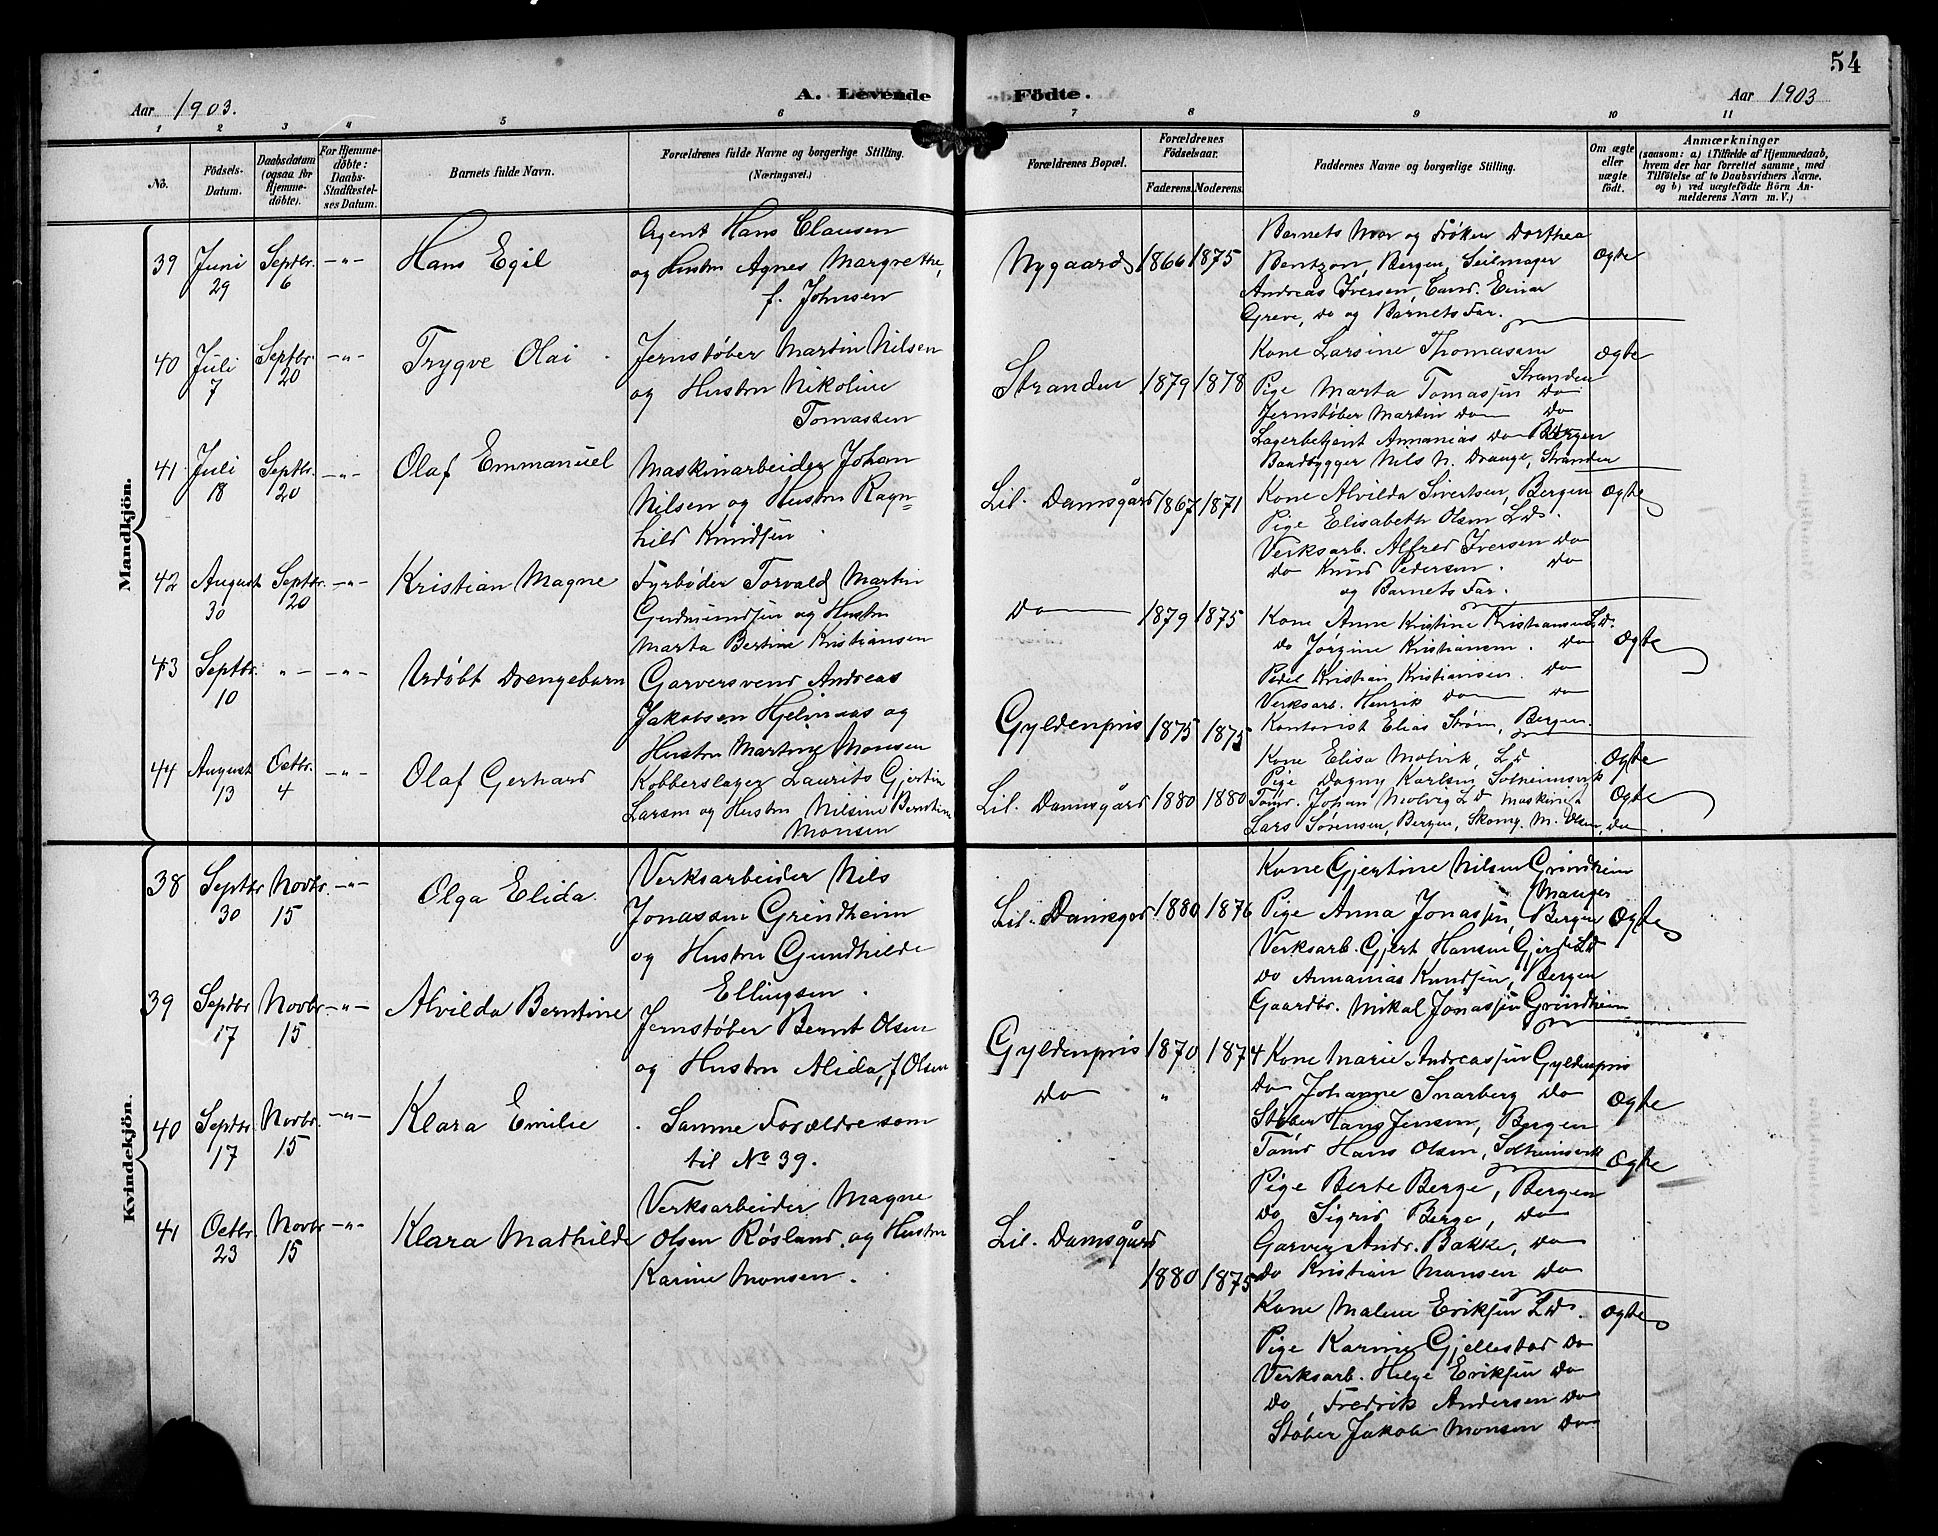 54
Aar 1903.
A. Levende Födte.
Aar 1903
1 2 3 4 5 6 7 8 9 10 11
No.
Födsels-Datum.
Daabsdatum (ogsaa for Hjemmedöbte).
For Hjemmedöbte: Daabs-Stadfæstelses Datum.
Barnets fulde Navn.
Forældrenes fulde Navne og borgerlige Stilling.
(Næringsvei.)
Forældrenes Bopæl.
Forældrenes Födselsaar.
Faderens. Moderens.
Faddernes Navne og borgerlige Stilling.
Om ægte eller uægte födt.
Anmærkninger
(saasom: a) i Tilfælde af Hjemmedaab, hvem der har forrettet samme, med Tilföielse af to Daabsvidners Navne, og b) ved uægtefödte Börn Anmelderens Navn m. V.)
Mandkjön.
39 Juni 29 Septbr. 6 -"- Hans Egil
Agent Hans Clausen
og Hustru Agnes Margrethe,
f. Johnsen
Nygaard 1866 1875
Barnets Mor og Frøken Dorthea
Bentzon, Bergen, Seilmager
Andreas Iversen, Cand. Einar
Greve, do og Barnets Far.
Ægte
40 Juli 7 Septbr 20 -"- Trygve Olai
Jernstøber Martin Nilsen
og Hustru Nikoline
Tomassen
Stranden 1879 1878
Kone Larsine Thomassen
Stranden
Pige Marta Tomassen do
Jernstøber Martin do do
Lagerbetjent Annanias do Bergen
Baadbygger Nils N. Drange, Stranden
Ægte
41 Juli 18 Septbr. 20 -"- Olaf Emmanuel
Maskinarbeider Johan
Nilsen og Hustru Ragn=
hild Knudsen
Lil. Damsgård 1867 1871
Kone Alvilda Sivertsen, Bergen
Pige Elisabeth Olsen L.D.
Verksarb. Alfred Iversen do
do Knud Pedersen. do
og Barnets Far.
Ægte
42 August 30 Septbr. 20 -"- Kristian Magne
Fyrbøder Torvald Martin
Gudmundsen og Hustru
Marta Bertine Kristiansen
do 1879 1875
Kone Anne Kristine Kristiansen L.D.
do Jørgine Kristiansen. do
Pedel Kristian Kristiansen. do
Verksarb. Henrik do do
Ægte
43 Septbr. 10 "- -"- Udøbt Drengebarn
Garversvend Andreas
Jakobsen Hjelmaas og
Hustru Martine Monsen
Gyldenpris 1875 1875
Kontorist Elias Strøm, Bergen.
Ægte
44 August 13 Octbr. 4 -"- Olaf Gerhard
Kobberslager Laurits Gjertin
Larsen og Hustru Nilsine Berntine
Monsen
Lil. Damsgård 1880 1880
Kone Elisa Molvik, L.D
Pige Dagny Karlsen Solheimsvik
Tømr. Johan Molvig L.D Maskinist
Lars Sørensen, Bergen, Skomg. M. Olsen, do.
Ægte
Kvindekjön.
38 Septbr 30 Novbr. 15 -"- Olga Elida.
Verksarbeider Nils
Jonassen Grindheim
og Hustru Gundhilde
Ellingsen.
Lil. Damsgård 1880 1876
Kone Gjertine Nilsen Grindheim
(Manger
Pige Anna Jonassen, Bergen
Verksarb. Gjert Hansen Gjerde LD
do Annanias Knudsen, Bergen
Gaardbr. Mikal Jonassen Grindheim
Ægte
39 Septbr 17 Novbr 15 -"- Alvilda Berntine
Jernstøber Bernt Olsen
og Hustru Alida, f Olsen
Gyldenpris 1870 1874
Kone Marie Andreassen Gyldenpris
do Johanne Snarberg do
Støber Hans Jensen, Bergen
Tømr Hans Olsen, Solheimsvik
Ægte
40 Septbr. 17 Novbr. 15 -"- Klara Emilie
Samme Forældre som
til No 39.
do "
Pige Berte Berge, Bergen
do Sigrid Berge, do
Garver Andr. Bakke, do
do Kristian Monsen do
Ægte
41 Octbr. 23 Novbr 15 -"- Klara Mathilde
Verksarbeider Magne
Olsen Røsland. og Hustru
Karine Monsen.
Lil. Damsgård
1880 1875
Kone Malene Eriksen L.D.
Pige Karine Gjellestad do
Verksarb. Helge Eriksen do
do, Fredrik Andersen do
Støber Jakob Monsen do
Ægte